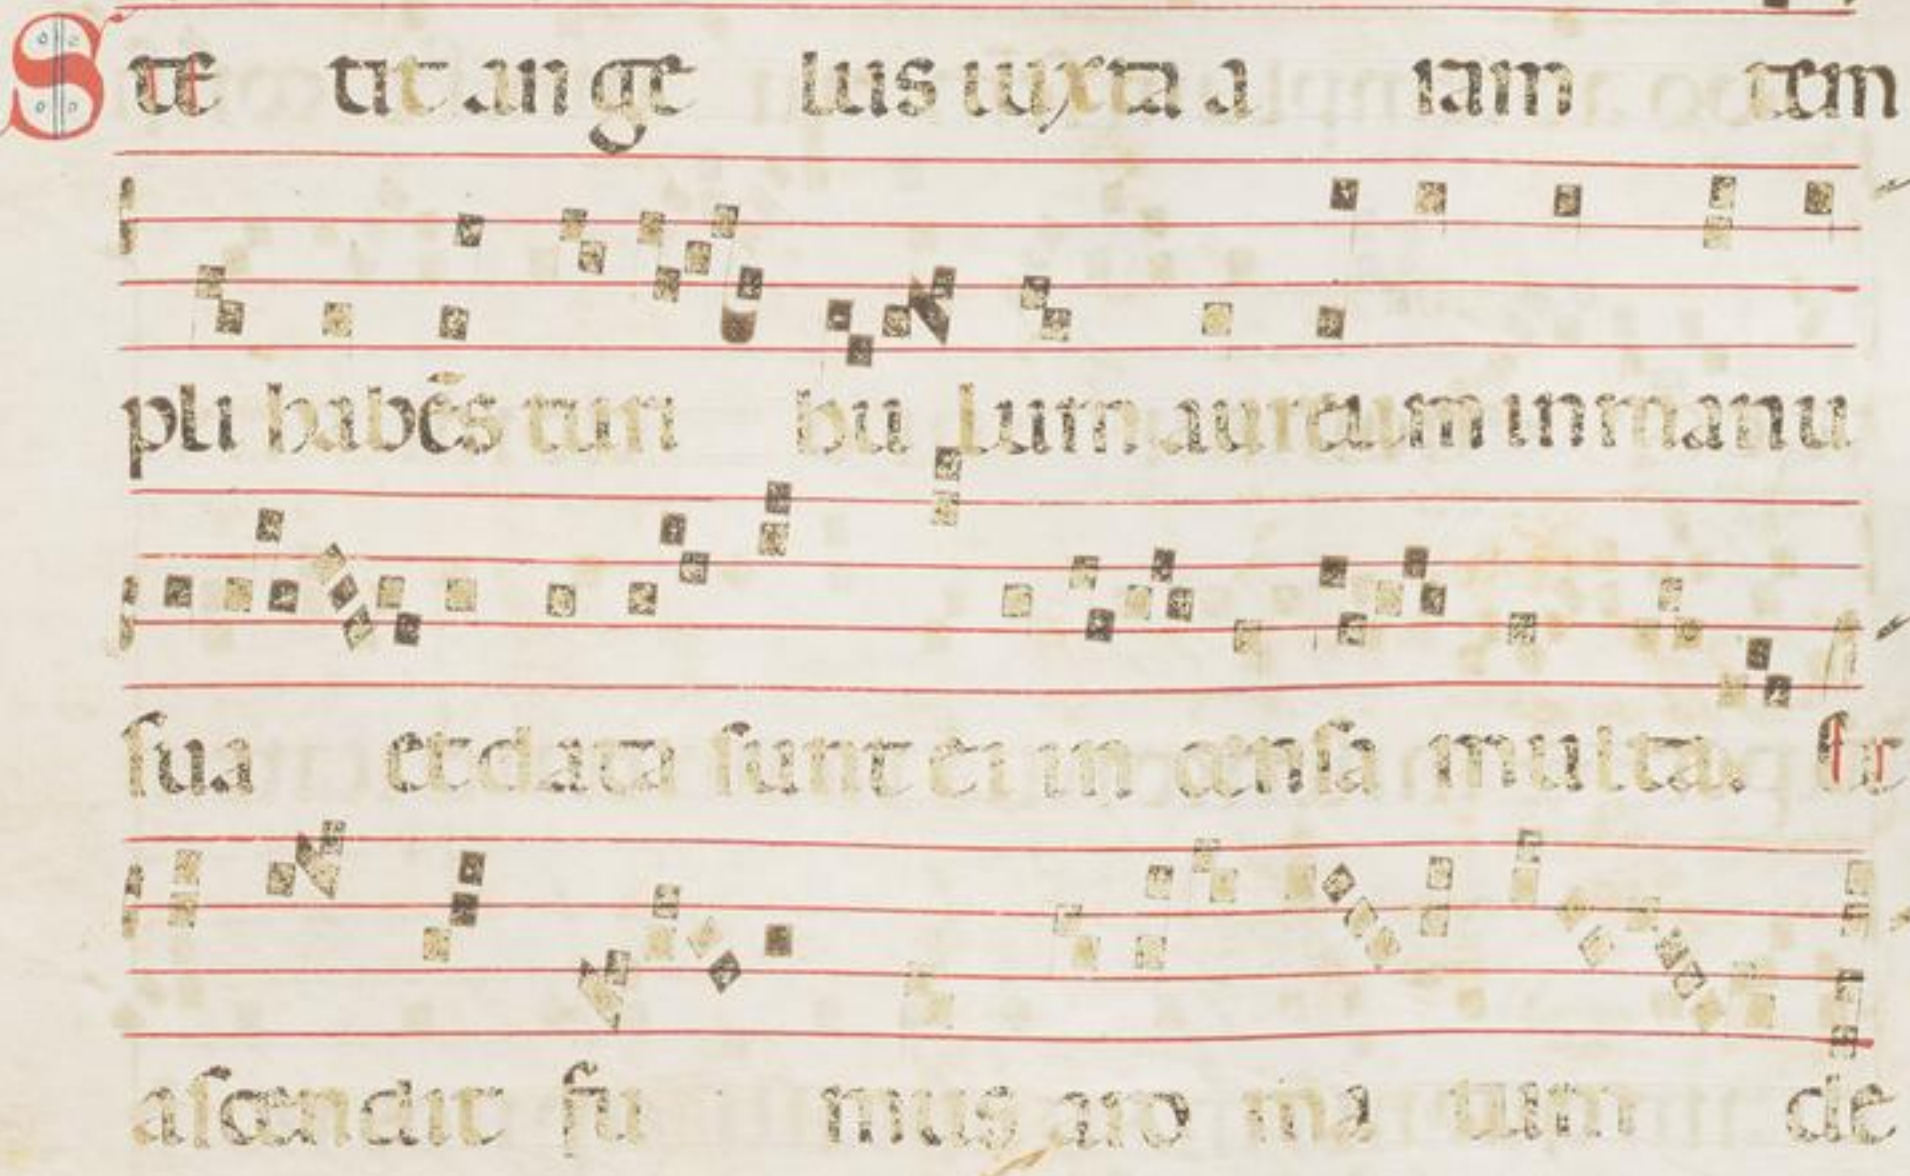 Ste tit ange lus iuxta a ram tem
pli habēs turi bu lum aureum in manu
sua et data sunt ei in censa multa. Et
ascendit fu mus aro ma tum de